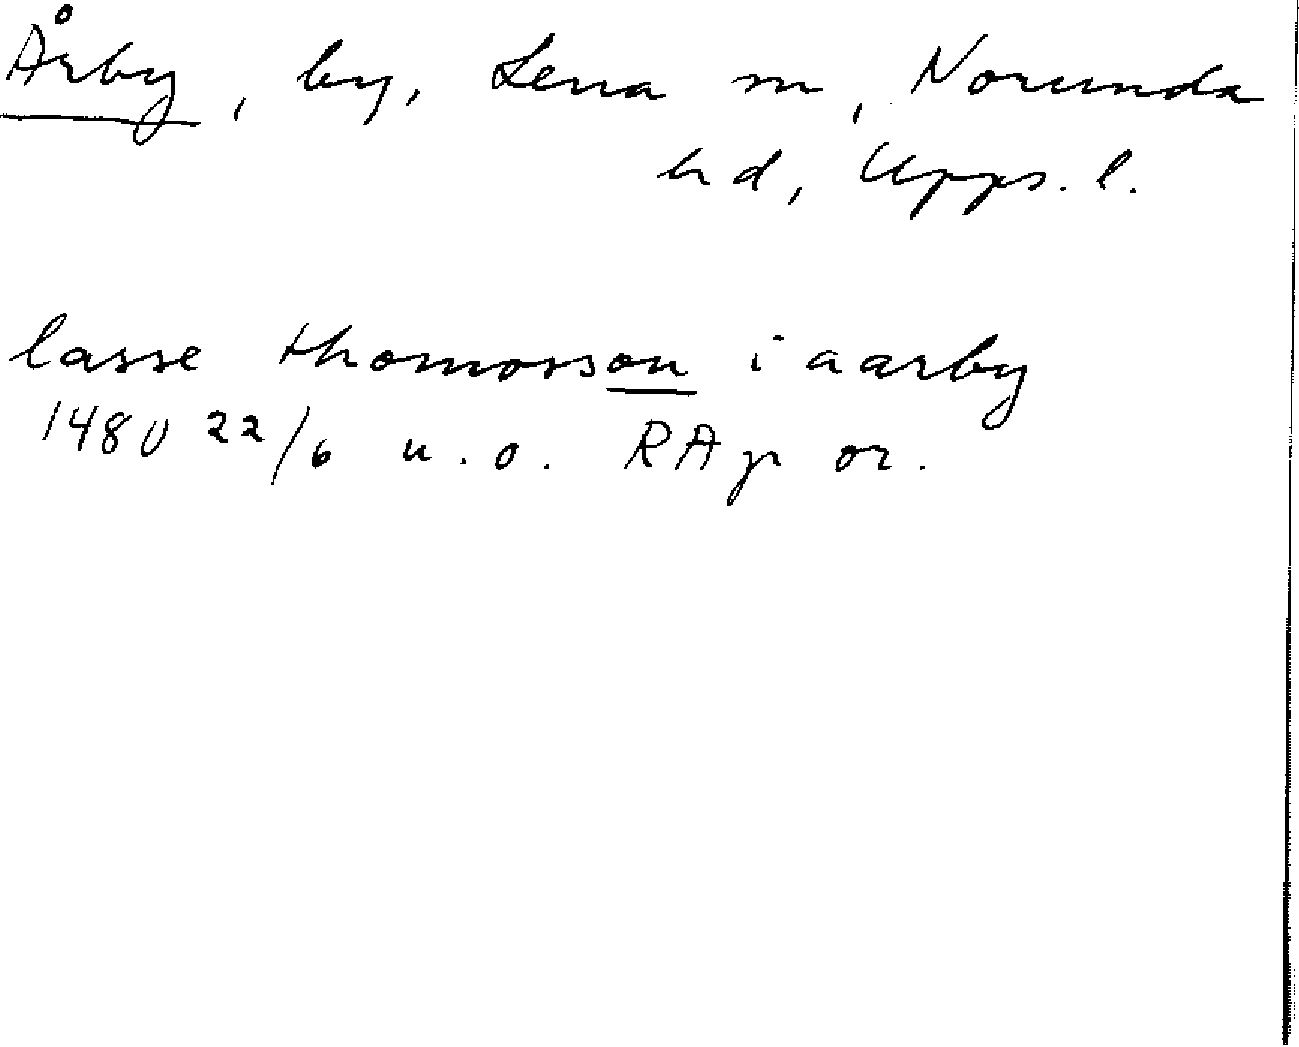 Årby, by, Lena sn, Norunda
hd, Upps. l.
lasse thomosson i aarby
1480 22/6 u.o. RAp or.